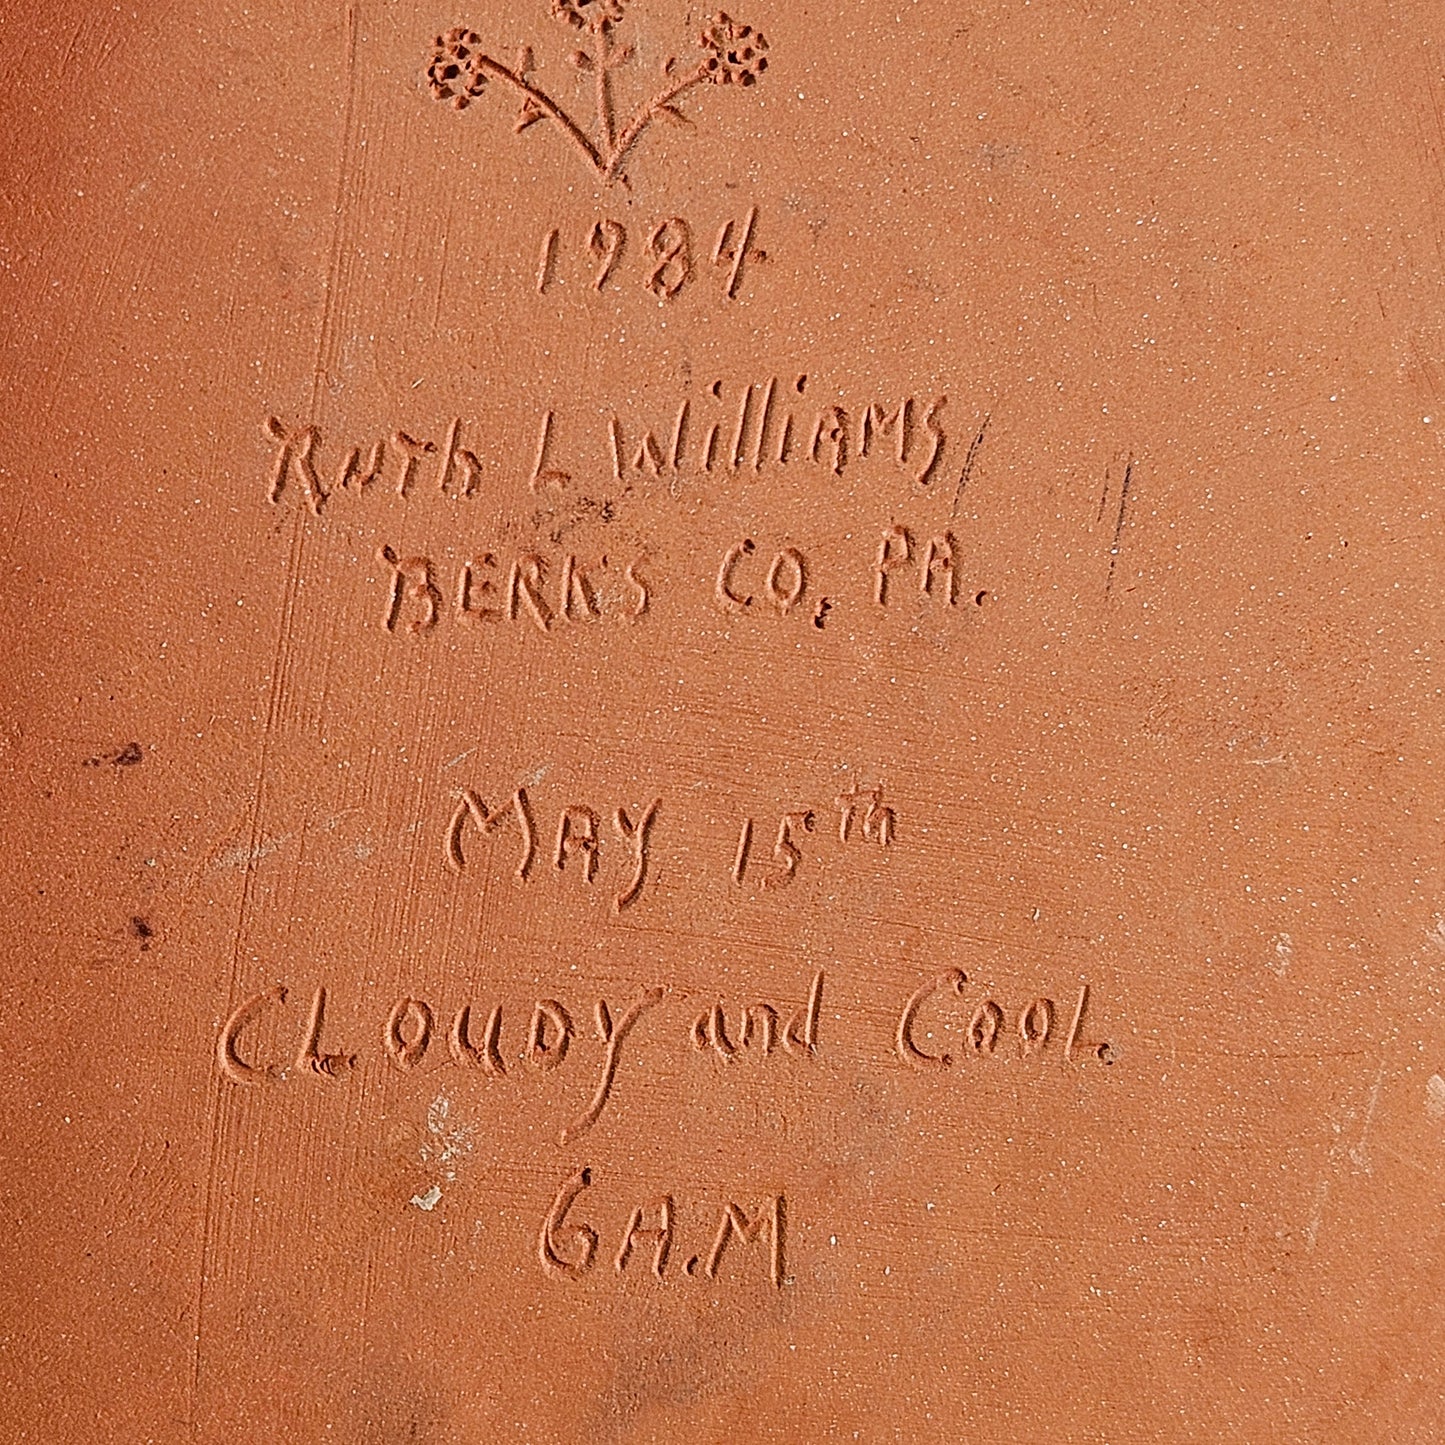 1984
Ruth L Williams
BERK'S CO, PA.
MAY 15th
CLOUDY and COOL.
6 A.M